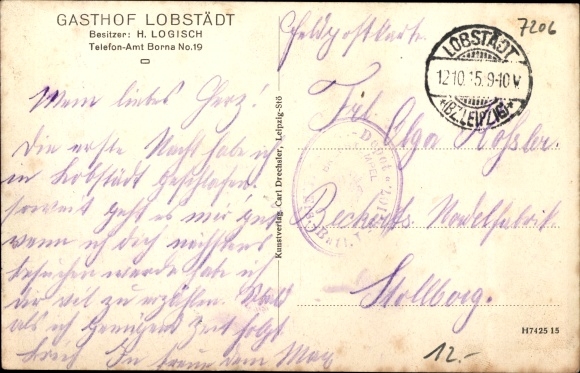 GASTHOF LOBSTÄDT
Besitzer: H. LOGISCH
Telefon-Amt Borna No. 19
Mein liebes Herz!
Die erste Nacht habe ich
in Lobstädt geschlafen.
soweit geht es mir gut
wenn ich dich nächstens
besuchen werde habe ich
dir vil zu erzählen.
als ich genügend Zeit folgt
Brief. In Treue dein Max
Kunstverlag Carl Drechsler, Leipzig-Stö
Feldpostkarte.
7206
LOBSTÄDT
12.10.15.9-10V
*(BZ. LEIPZIG)*
Frl. Olga Rößler.
Nadelfabrik
Stollberg.
H7425 15
12.-